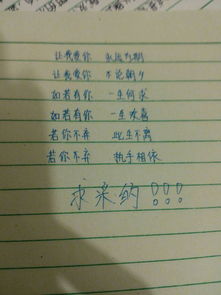 让我爱你 永远为期
让我爱你 不论朝夕
如若有你 一生何求
如若有你 一生欢喜
若你不弃 此生不离
若你不弃 执手相依
求采纳!!!